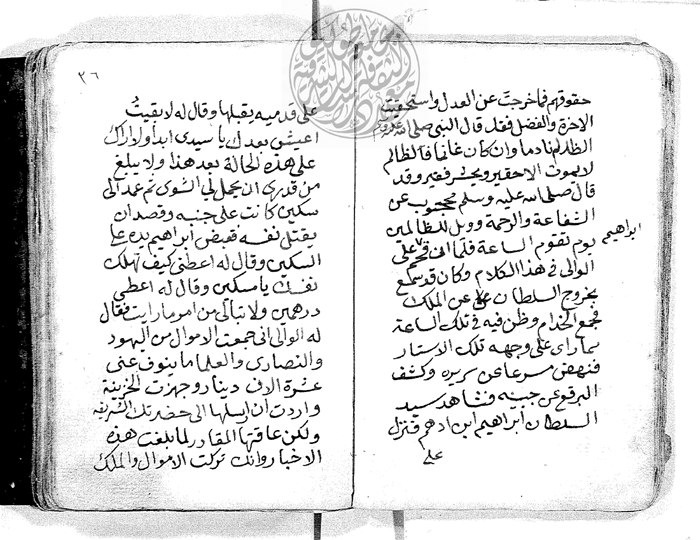 حقوقهم فما خرجت عن العدل واستحقيت
الاخرة والفضل فقد قال النبي صلى الله عليه وسلم
الظالم نادما وان كان غانما فالظالم
لا يموت الا حقير ويحشر فقير وقد
قال صلى الله عليه وسلم محجوب عن
الشفاعة والرحمة وويل للظالمين
يوم تقوم الساعة فلما اتى على
ابراهيم
الوالي في هذا الكلام وكان قد سمع
بخروج السلطان عن الملك
فجمع الخدام وظن فيه في تلك الساعة
بما راى على وجهه تلك الاستار
فنهض مسرعا عن سريره وكشف
البرقع عن جبينه فشاهد سيد
السلطان أبراهيم ابن ادهم فنزل
على
٣٦
على قدميه يقبلها وقال له لا بقيتُ
اعيش بعدك يا سيدي ابدا ولا اراك
على هذه الحالة بعد هذا ولا يبلغ
من قدري ان يحمل لي الشوى ثم عمد الى
سكين كانت على جنبه وقصد ان
يقتل نفسه فقبض أبراهيم يده على
السكين وقال له اعطني كيف تهلك
نفسك يا مسكين وقال له اعطي
درهمين ولا تبالي من امور رايت فقال
له الوالي اني جمعت الاموال من اليهود
والنصارى والعلما ما ينوف عنى
عشرة الاف دينار وجهزت الخزينة
واردت ان ارسلها الى حضرتك الشريفه
ولكن عاقتها المقادر لما بلغت هذه
الاخبار وانك تركت الاموال والملك